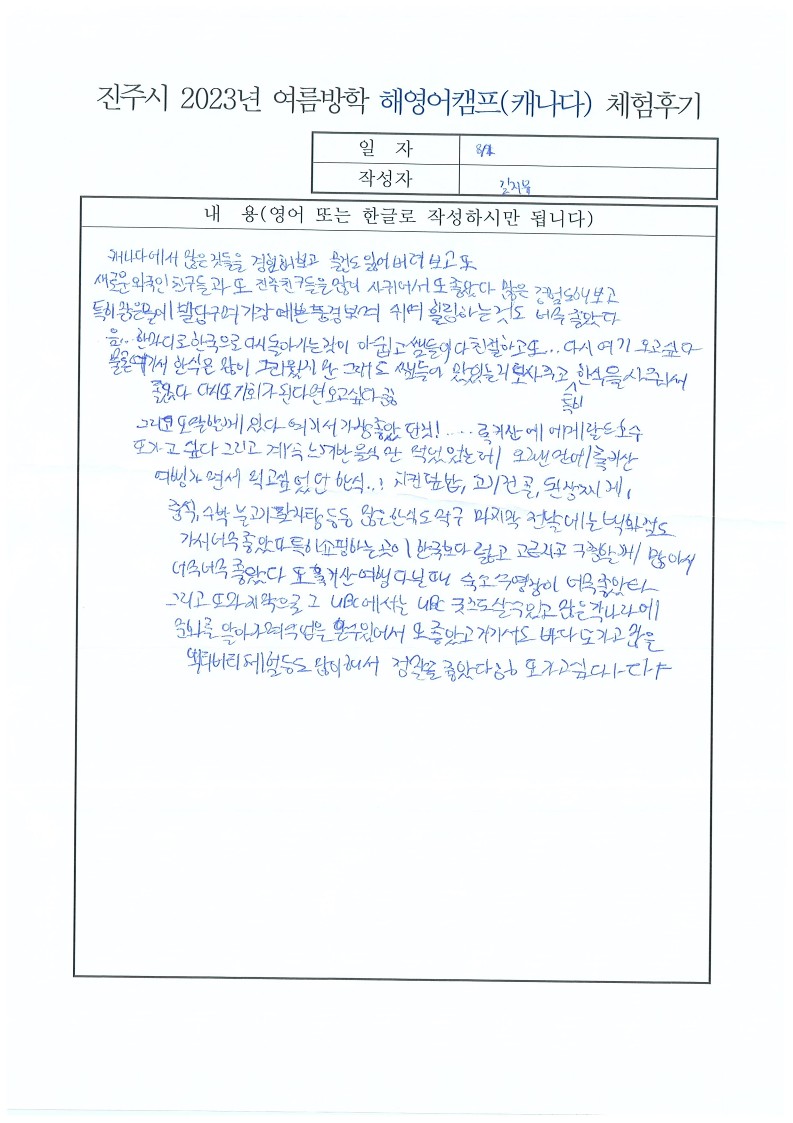 진주시 2023년 여름방학 해영어캠프(캐나다) 체험후기
일 자
작성자
내 용(영어 또는 한글로 작성하시만 됩니다)
캐나다에서 많은 것들을 경험해보고 물건도 잃어버려보고 또
새로운 외국인 친구들과 또 진주친구들을 많이 사귀어서 또 좋았다 많은 경험도해보고
특히 맑은물에 발담구며 가장 예쁜 풍경보며 쉬며 힐링하는것도 너무 좋았다
음.. 한마디로 한국으로 다시돌아가는것이 아쉽고 쌤들이 다 친절하고 또... 다시 여기 오고싶다
물론 여기서 한식은 많이 그리웠지만 그래도 쌤들이 맛있는거 사주고 특히 한식을 사주셔서
좋았다 다시또 기회가 된다면 오고싶다
그리고 또 말할게 있다 여기서 가장좋았던것! .... 록키산에 에메랄드호수
또가고 싶다 그리고 계속 느끼한 음식만 먹었었는데 오랜만에 록키산
여행가면서 먹고싶었던 한식..! 치킨덮밥, 고기전골, 된장찌개,
중식, 수박 불고기 감자탕 등등 많은 한식도 먹구 마지막 전날에는 백화점도
가서 너무 좋았다 특히 쇼핑하는곳이 한국보다 넓고 고르지고 구경할게 많아서
너무너무 좋았다 또 록키산 여행다닐때 숙소 수영장이 너무 좋았다
그리고 또 마지막으로 그 UBC에서는 UBC 굿즈도살수있고 많은 각나라에
문화를 알아가며 수업을 할수있어서 또 좋았고 거기서도 바다 또가고 많은
액티비티 체험등도 많이해서 정말로 좋았다 또 가고싶다ㅏ다ㅑ